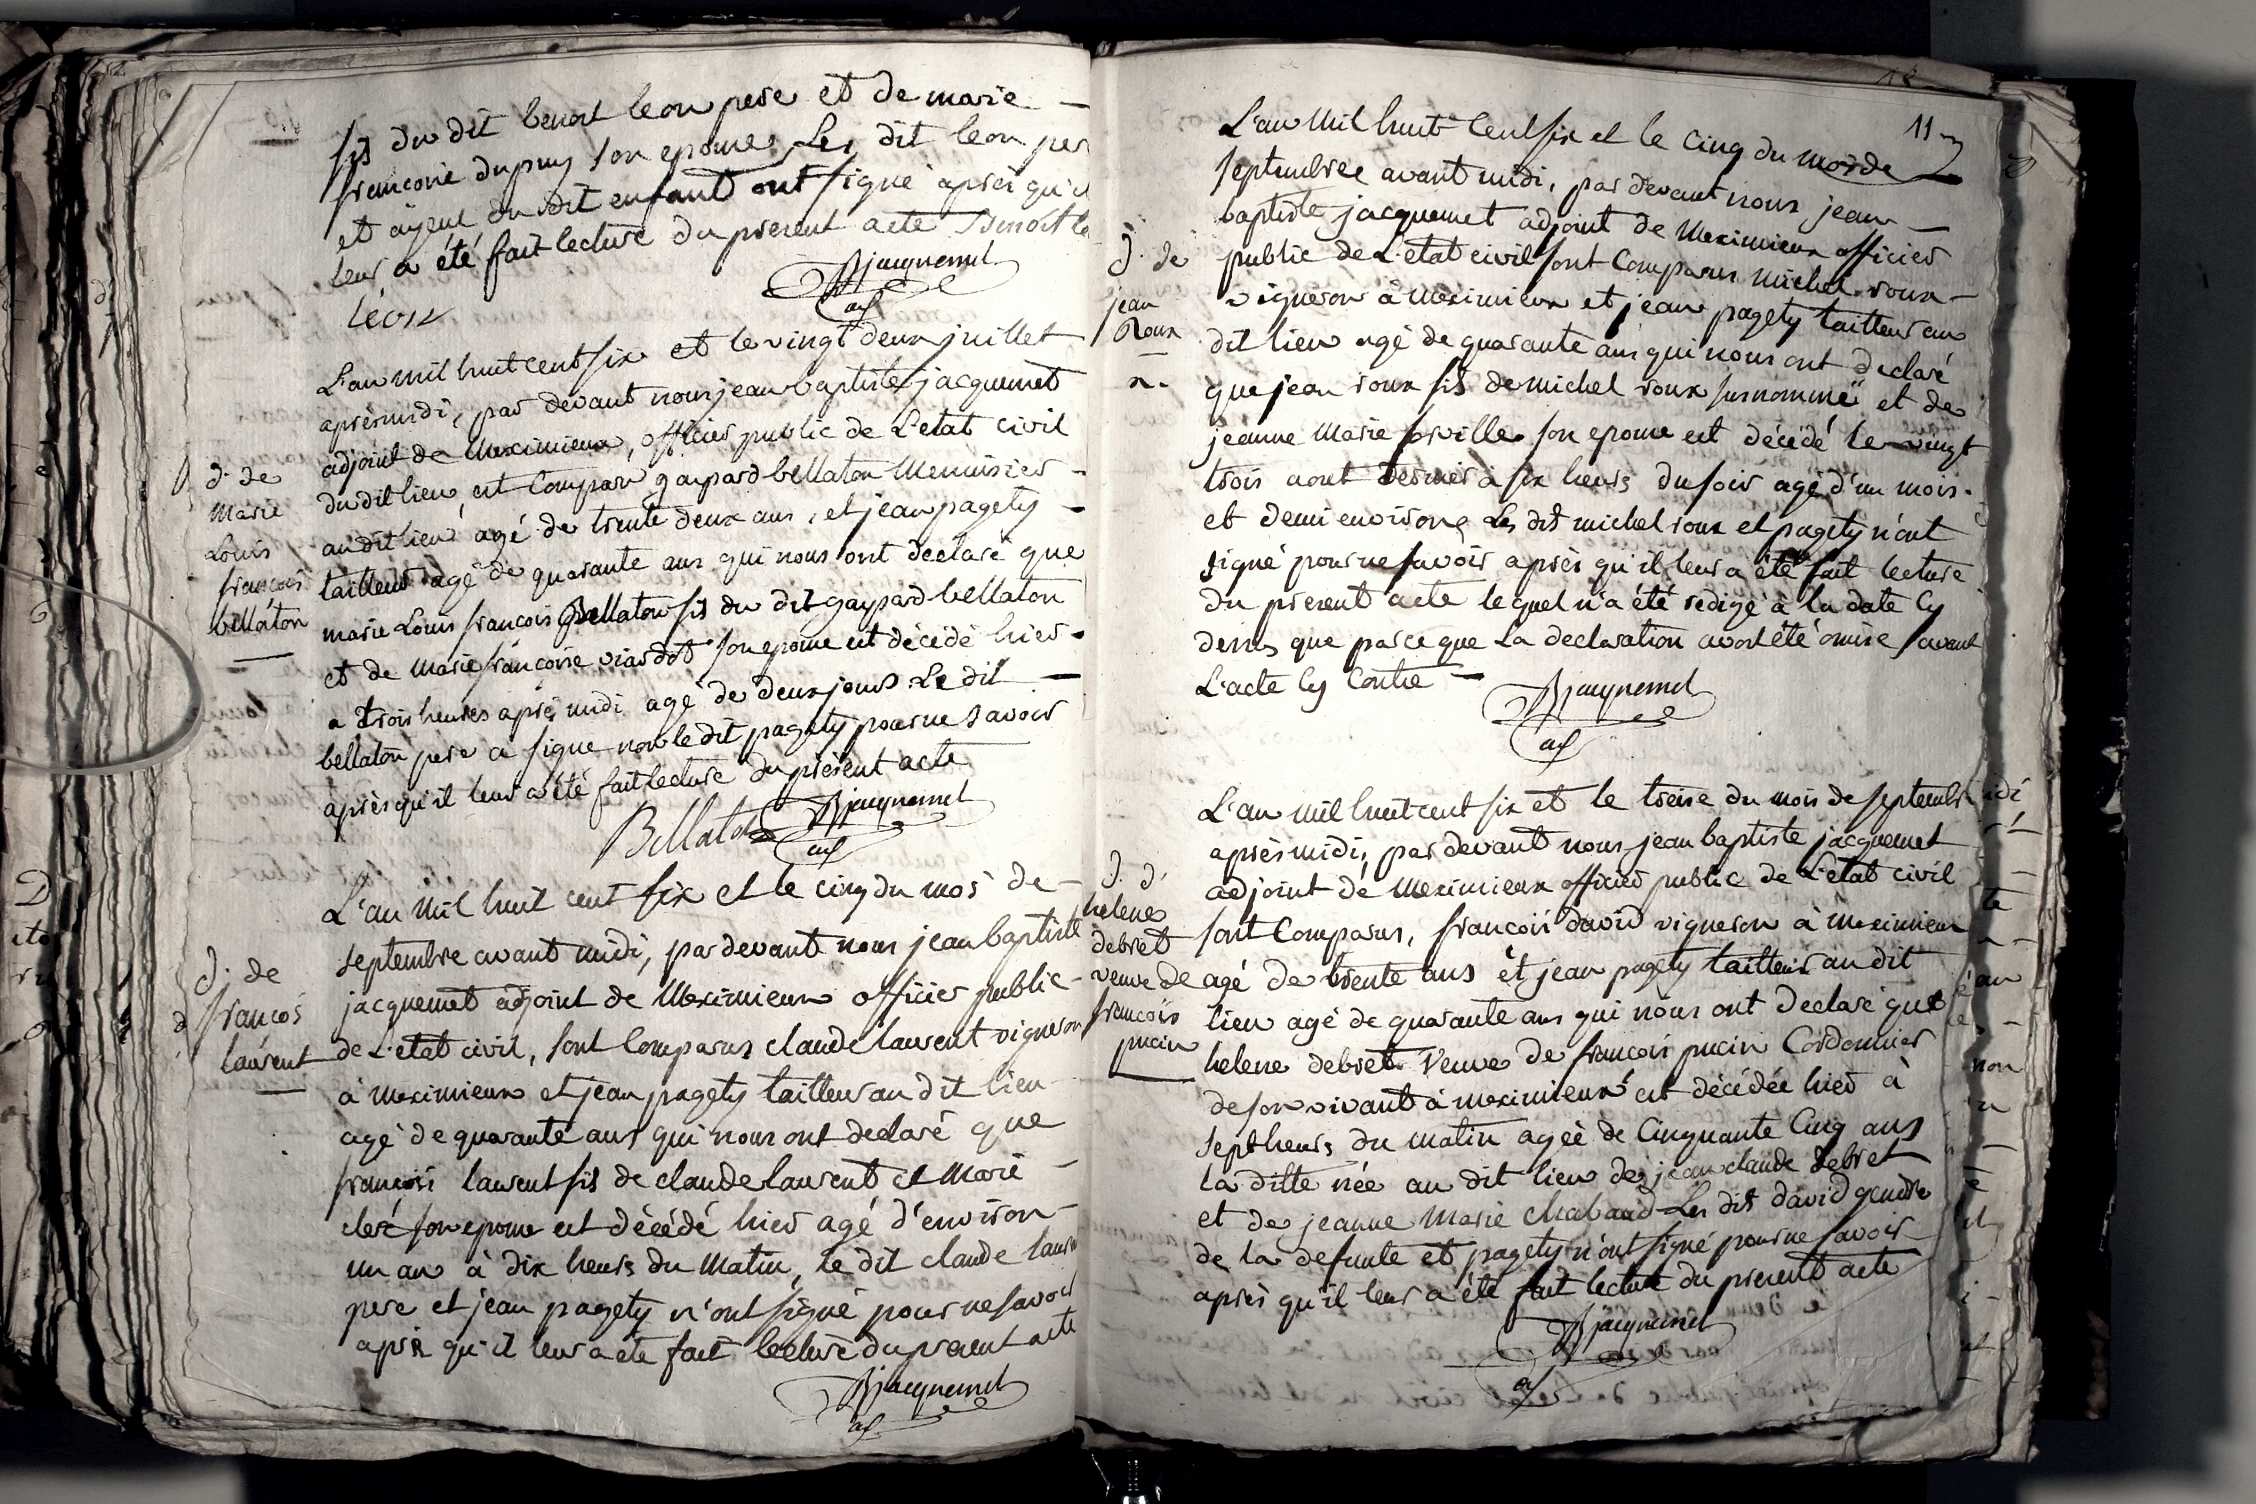 fils du dit benoit leon pere et de marie
francoise dupuy son epouse. Les dit leon per
et ayeul du dit enfant ont signé après qu'il
leur a été fait lecture du present acte Benoit le
Léon
JBjacquemet
adj
d. de
Marie
Louis
francois
bellaton
L'an mil huit cent six et le vingt deux juillet
après midi, par devant nous jean baptiste jacquemet
adjoint de Meximieux, officier public de L'etat civil
du dit lieu est Comparu gaspard bellaton Menuisier
au dit lieu agé de trente deux ans, et jean pagety
tailleur agé de quarante ans qui nous ont declaré que
marie Louis francois Bellaton fils du dit gaspard bellaton
et de marie françoise viardot son epouse est décédé hier
a trois heures après midi agé de deux jours. Le dit
bellaton pere a signé non le dit pagety pour ne savoir
après qu'il leur a été fait lecture du présent acte
Bellaton JBjacquemet
adj
d. de
francois
laurent
L'an Mil huit cent six et le cinq du mois de
septembre avant midi, par devant nous jean baptiste
jacquemet adjoint de Meximieux officier public
de L'etat civil, sont Comparus claude laurent vigneron
à meximieux et jean pagety tailleur au dit lieu
agé de quarante ans qui nous ont declaré que
francois laurent fils de claude laurent et Marie
cleré son epouse est décédé hier agé d'environ
un an à dix heures du Matin, le dit claude laurent
pere et jean pagety n'ont signé pour ne savoir
après qu'il leur a été fait lecture du present acte
JBjacquemet
adj
11
d. de
jean
Roux
n.
L'an Mil huit Cent six et le cinq du mois de
septembre avant midi, par devant nous jean
baptiste jacquemet adjoint de Meximieux officier
public de L'etat civil sont Comparus Michel roux
vigneron à Meximieux et jean pagety tailleur au
dit lieu agé de quarante ans qui nous ont declaré
que jean roux fils de michel roux surnommé et de
jeanne Marie sorville son epouse est décédé le vingt
trois aout dernier à six heures du soir agé d'un mois
et demi environ. Les dit michel roux et pagety n'ont
signé pour ne savoir après qu'il leur a été fait lecture
du present acte lequel n'a été redigé à la date Cy
dessus que parce que La declaration avoit été omise avant
L'acte Cy Contre
JBjacquemet
adj
d. d'
helene
debret
veuve de
francois
pucin
L'an mil huit cent six et le treize du mois de septembre
après midi, par devant nous jean baptiste jacquemet
adjoint de Meximieux officier public de L'etat civil
sont Comparus, francois david vigneron à meximieux
agé de trente ans et jean pagety tailleur au dit
lieu agé de quarante ans qui nous ont declaré que
helene debret Veuve de francois pucin Cordonnier
de son vivant à meximieux est décédée hier à
sept heures du matin agée de Cinquante Cinq ans
la ditte née au dit lieu de jean claude debret
et de jeanne Marie Chabaud Les dit david gendre
de la defunte et pagety n'ont signé pour ne savoir
après qu'il leur a été fait lecture du present acte
JBjacquemet
adj